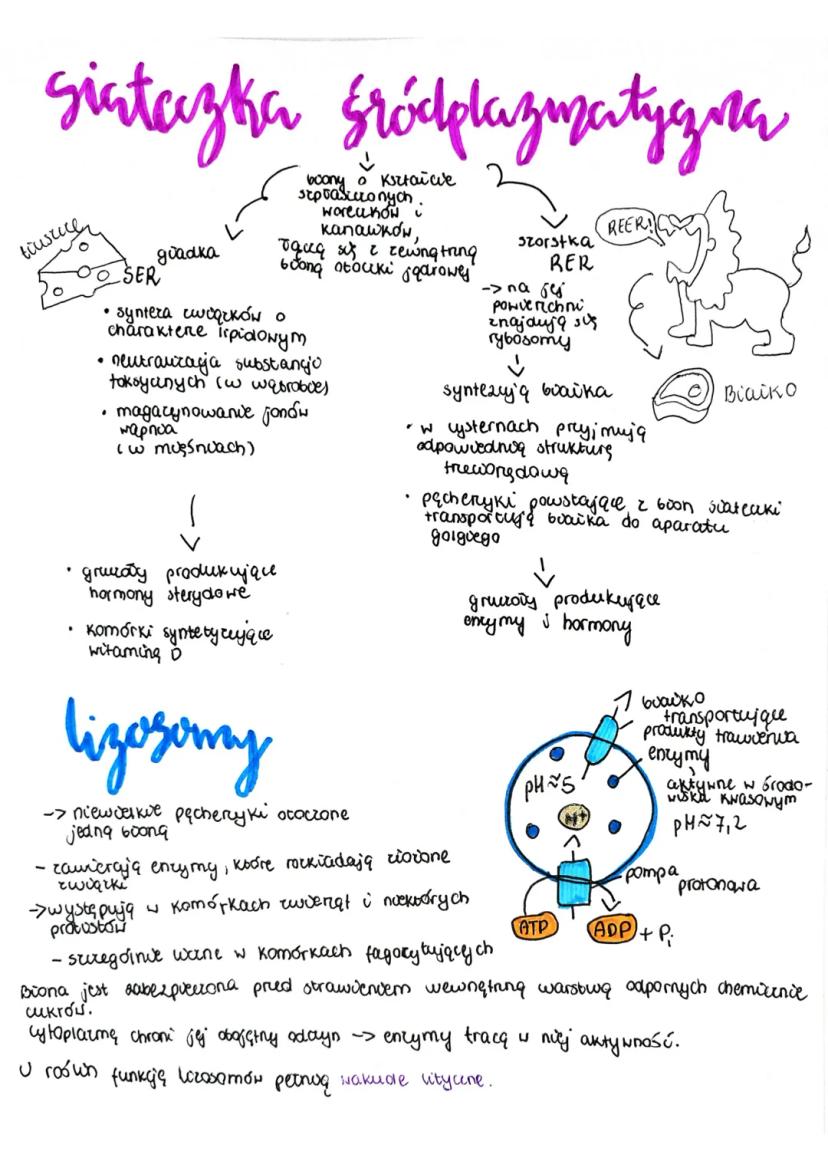 siateczka śródplazmatyczna
błony o kształcie
spłaszczonych
woreczków i
kanalików,
łączą się z zewnętrzną
błoną otoczki jądrowej
tłuszcze
gładka
SER
• synteza związków o
charakterze lipidowym
• neutralizacja substancji
toksycznych (w wątrobie)
• magazynowanie jonów
wapnia
(w mięśniach)
• gruczoły produkujące
hormony sterydowe
• komórki syntetyzujące
witaminę D
szorstka
RER
REER!
-> na jej
powierzchni
znajdują się
rybosomy
syntezują białka
Białko
• w cysternach przyjmują
odpowiednią strukturę
trzeciorzędową
• pęcherzyki powstające z błon siateczki
transportują białka do aparatu
golgiego
gruczoły produkujące
enzymy i hormony
lizosomy
-> niewielkie pęcherzyki otoczone
jedną błoną
- zawierają enzymy, które rozkładają złożone
związki
-> występują w komórkach zwierząt i niektórych
protistów
- szczególnie liczne w komórkach fagocytujących
białko
transportujące
produkty trawienia
enzymy
aktywne w środo-
wisku kwasowym
pH≈5
pH≈7,2
H+
pompa
protonowa
ATP
ADP + Pi
Błona jest zabezpieczona przed strawieniem wewnętrzną warstwą odpornych chemicznie
cukrów.
Cytoplazmę chroni jej obojętny odczyn -> enzymy tracą w niej aktywność.
U roślin funkcję lizosomów pełnią wakuole lityczne.